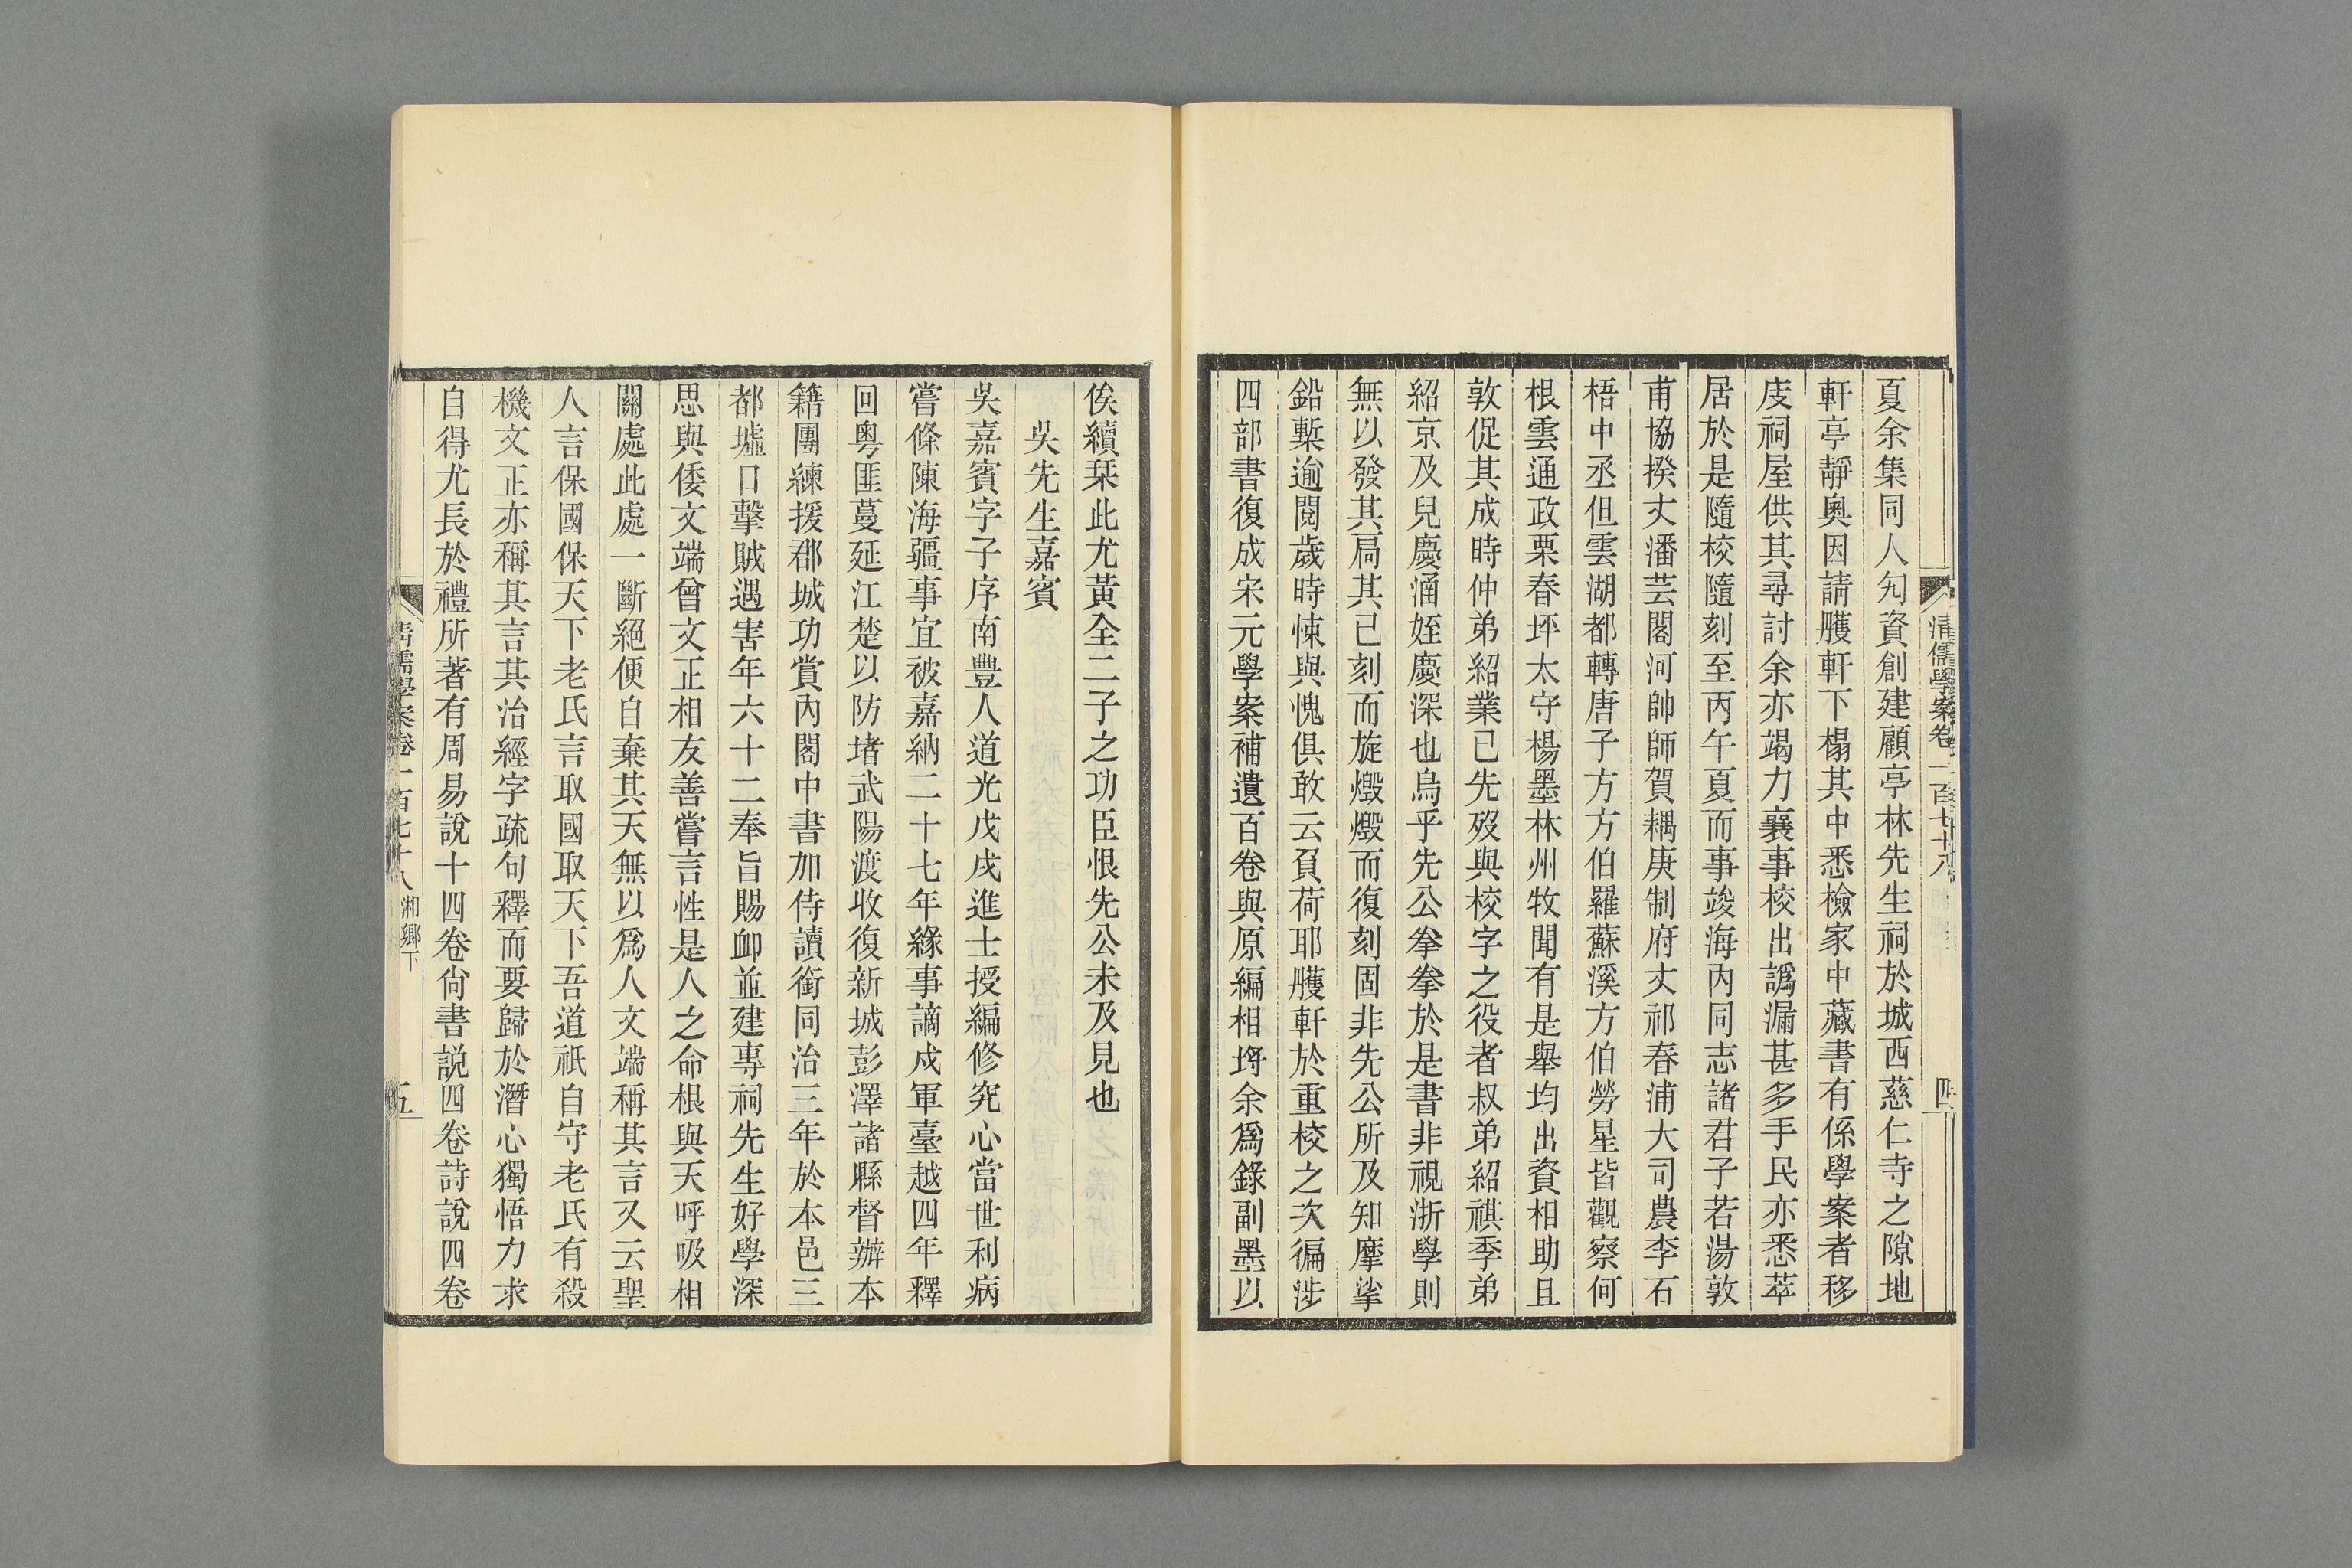 清儒學案卷一百七十八
四
夏余集同人勼資創建顧亭林先生祠於城西慈仁寺之隙地
軒亭靜奧因請雘軒下榻其中悉檢家中藏書有係學案者移
庋祠屋供其尋討余亦竭力襄事校出譌漏甚多手民亦悉萃
居於是隨校隨刻至丙午夏而事竣海內同志諸君子若湯敦
甫協揆丈潘芸閣河帥師賀耦庚制府丈祁春浦大司農李石
梧中丞但雲湖都轉唐子方方伯羅蘇溪方伯勞星皆觀察何
根雲通政栗春坪太守楊墨林州牧聞有是舉均出資相助且
敦促其成時仲弟紹業已先歿與校字之役者叔弟紹祺季弟
紹京及兒慶涵姪慶深也烏乎先公拳拳於是書非視浙學則
無以發其局其已刻而旋燬燬而復刻固非先公所及知摩挲
鉛槧逾閱歲時悚與愧俱敢云負荷耶雘軒於重校之次徧涉
四部書復成宋元學案補遺百卷與原編相埒余爲錄副墨以
俟續栞此尤黃全二子之功臣恨先公未及見也
吳先生嘉賓
吳嘉賓字子序南豐人道光戊戌進士授編修究心當世利病
嘗條陳海疆事宜被嘉納二十七年緣事謫戍軍臺越四年釋
回粵匪蔓延江楚以防堵武陽渡收復新城彭澤諸縣督辦本
籍團練援郡城功賞內閣中書加侍讀銜同治三年於本邑三
都墟口擊賊遇害年六十二奉旨賜卹並建專祠先生好學深
思與倭文端曾文正相友善嘗言性是人之命根與天呼吸相
關處此處一斷絕便自棄其天無以爲人文端稱其言又云聖
人言保國保天下老氏言取國取天下吾道祇自守老氏有殺
機文正亦稱其言其治經字疏句釋而要歸於潛心獨悟力求
自得尤長於禮所著有周易說十四卷尙書說四卷詩說四卷
清儒學案卷一百七十八 湘鄉下
五